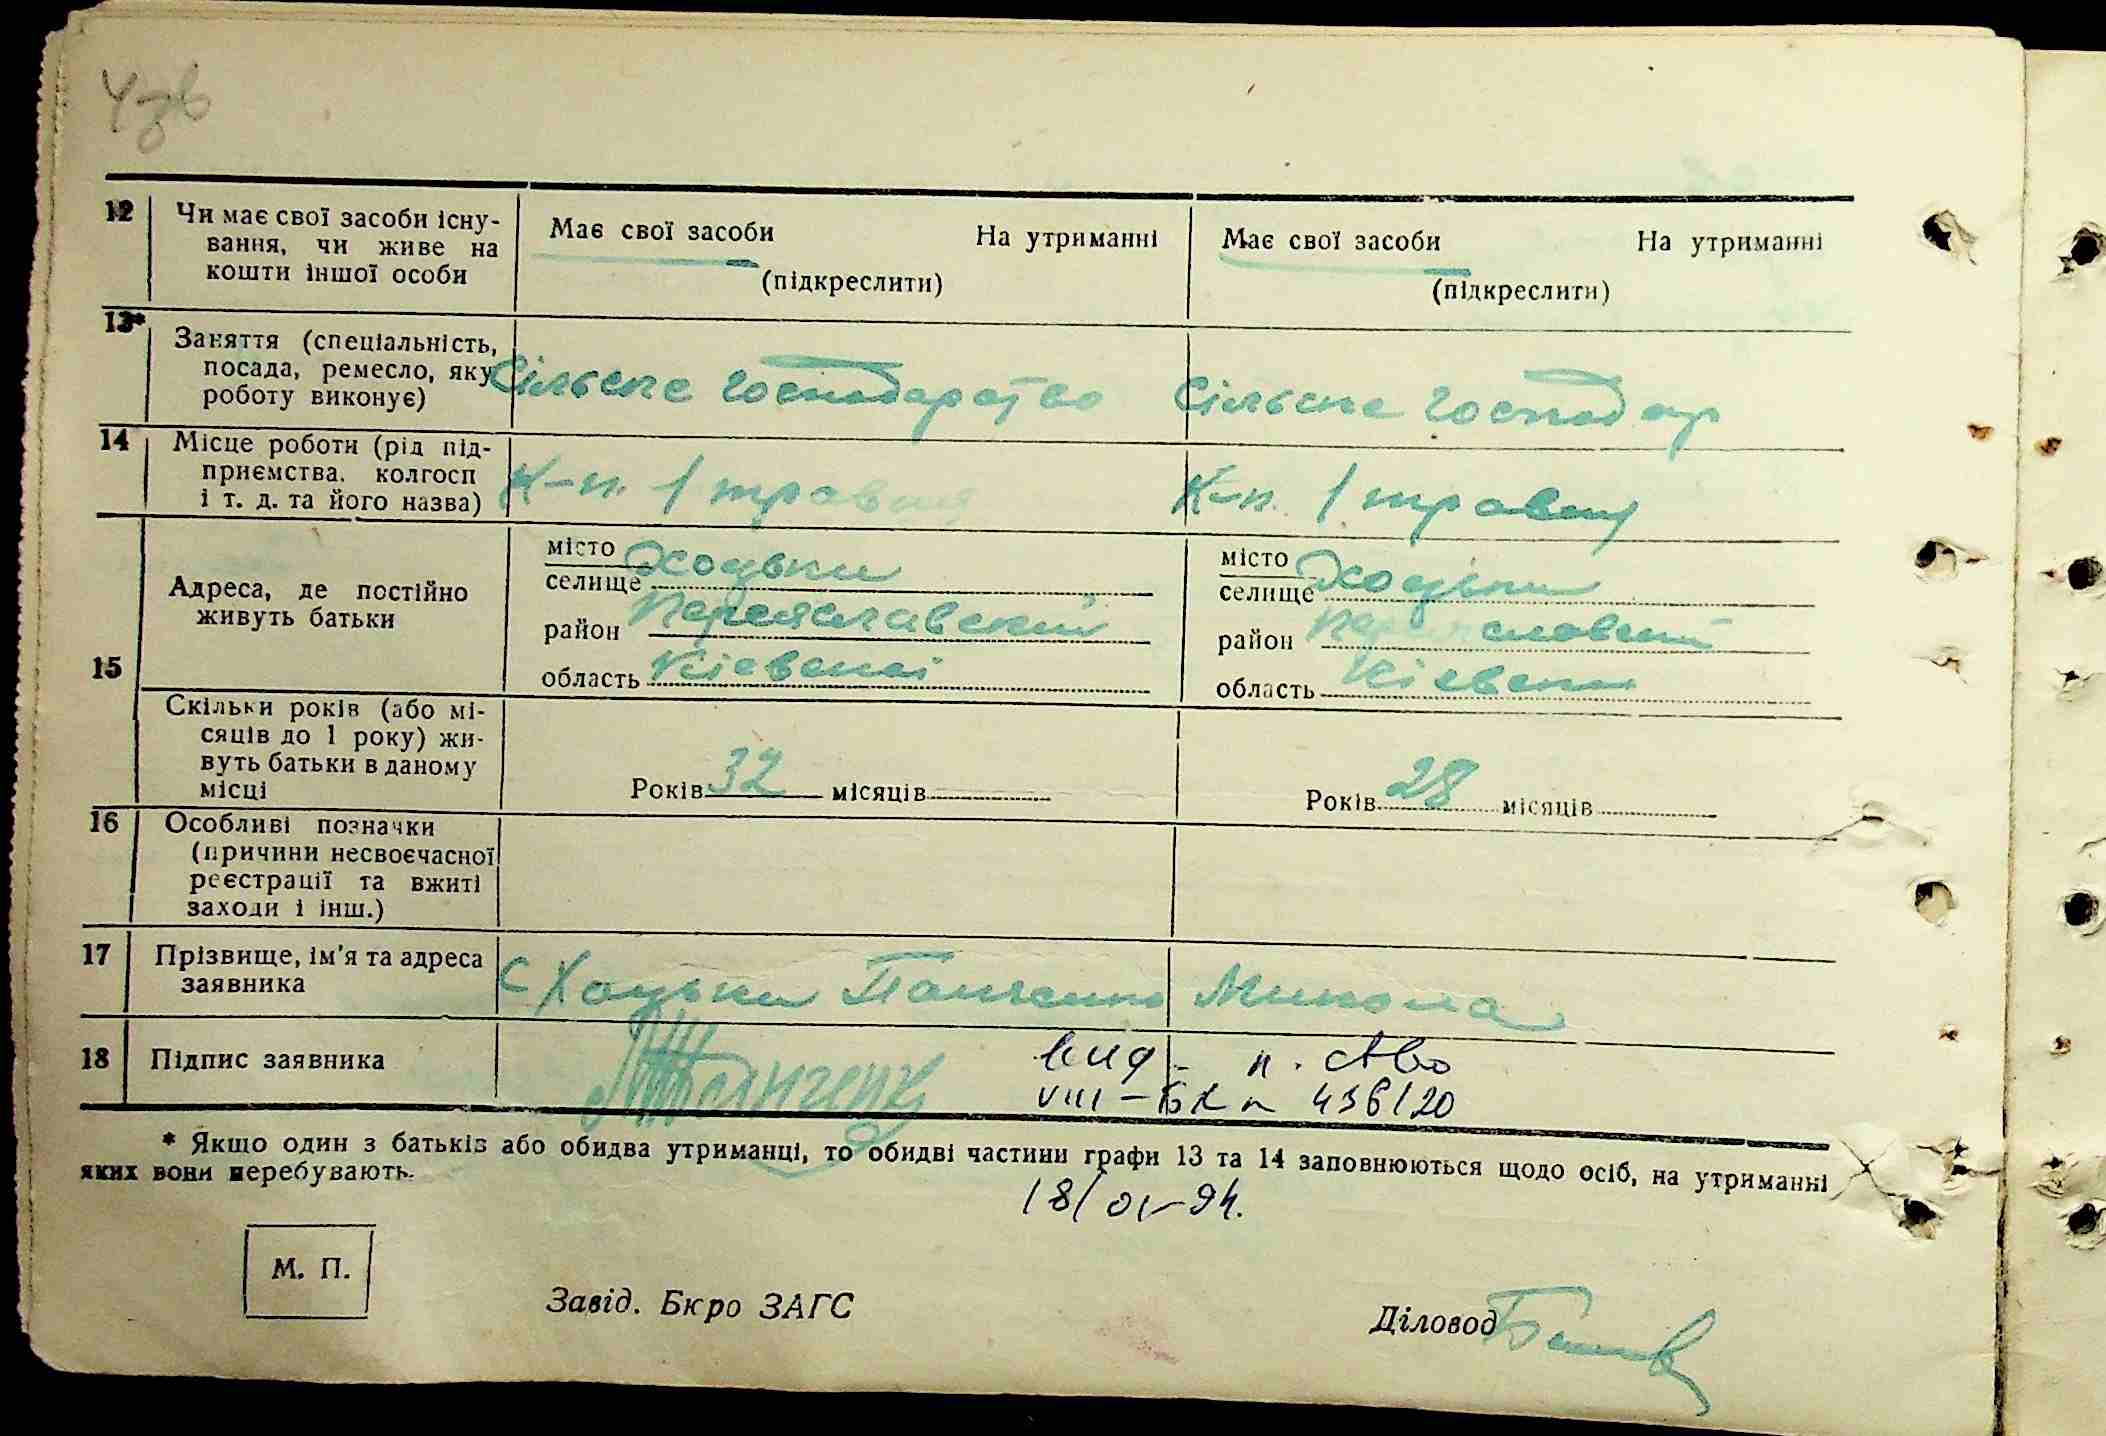 43в
12 Чи має свої засоби існу-
вання, чи живе на
кошти іншої особи
Має свої засоби На утриманні
(підкреслити)
Має свої засоби На утриманні
(підкреслити)
13* Заняття (спеціальність,
посада, ремесло, яку
роботу виконує)
Сільське господарство
Сільське господар
14 Місце роботи (рід під-
приємства, колгосп
і т. д. та його назва)
К-п. 1 травня
К-п. 1 травня
15 Адреса, де постійно
живуть батьки
місто
селище Хоцьки
район Переяславский
область Кіевскоі
місто
селище Хоцьки
район Переяславский
область Кіевскоі
Скільки років (або мі-
сяців до 1 року) жи-
вуть батьки в даному
місці
Років 32 місяців
Років 28 місяців
16 Особливі позначки
(причини несвоєчасної
реєстрації та вжиті
заходи і інш.)
17 Прізвище, ім'я та адреса
заявника
С Хоцьки Панченко Микола
18 Підпис заявника
Панченко
вид. п. сво
VIII-БК н 436120
* Якщо один з батьків або обидва утриманці, то обидві частини графи 13 та 14 заповнюються щодо осіб, на утриманні
яких вони перебувають.
18/01-94.
М. П.
Завід. Бюро ЗАГС
Діловод